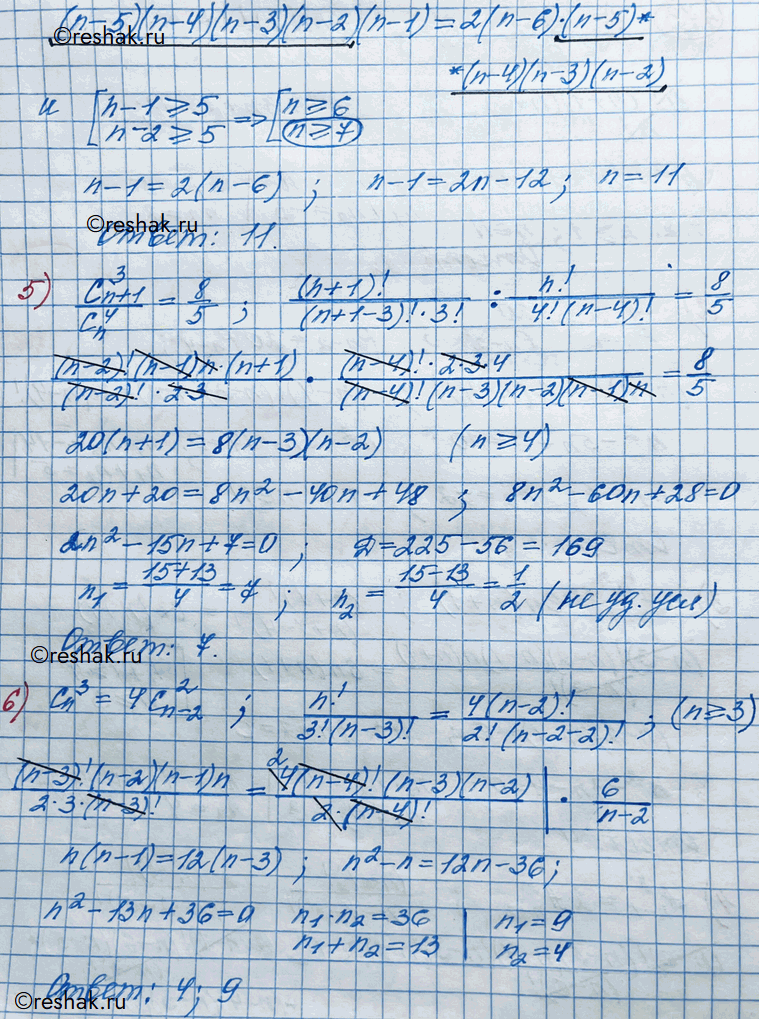 (n-5)(n-4)(n-3)(n-2)(n-1)=2(n-6)·(n-5)*
*(n-4)(n-3)(n-2)
и [n-1≥5 => [n≥6
n-2≥5 n≥7
n-1=2(n-6) ; n-1=2n-12; n=11
©reshak.ru
Ответ: 11.
5) C³ₙ₊₁/C⁴ₙ = 8/5 ; (n+1)!/((n+1-3)!·3!) : n!/(4!(n-4)!) = 8/5
(n-2)!(n-1)n·(n+1)/((n-2)!·2·3) · (n-4)!·2·3·4/((n-4)!(n-3)(n-2)(n-1)n) = 8/5
20(n+1)=8(n-3)(n-2) (n≥4)
20n+20=8n²-40n+48 ; 8n²-60n+28=0
2n²-15n+7=0 ; D=225-56=169
n₁ = (15+13)/4 = 7 ; n₂ = (15-13)/4 = 1/2 (не уд. усл)
Ответ: 7.
©reshak.ru
6) Cₙ³ = 4C²ₙ₋₂ ; n!/(3!(n-3)!) = 4(n-2)!/(2!(n-2-2)!) ; (n≥3)
(n-3)!(n-2)(n-1)n/(2·3·(n-3)!) = 2 4(n-4)!(n-3)(n-2)/(2·(n-4)!) | · 6/(n-2)
n(n-1)=12(n-3) ; n²-n=12n-36;
n²-13n+36=0 n₁·n₂=36 | n₁=9
n₁+n₂=13 | n₂=4
Ответ: 4; 9
©reshak.ru